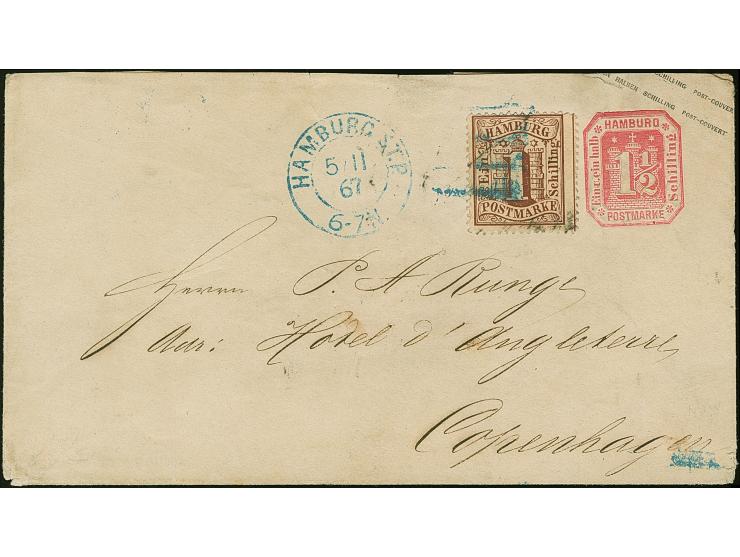 HALBEN SCHILLING POST-COUVERT
SCHILLING POST-COUVERT
HAMBURG ST.P.
5/11
67
6-7N.
HAMBURG
Ein
1
Schilling
POSTMARKE
HAMBURG
Ein u. ein halb
1 1/2
Schilling
POSTMARKE
Herrn P. A Runge
Adr: Hotel d'Angleterre
Copenhagen